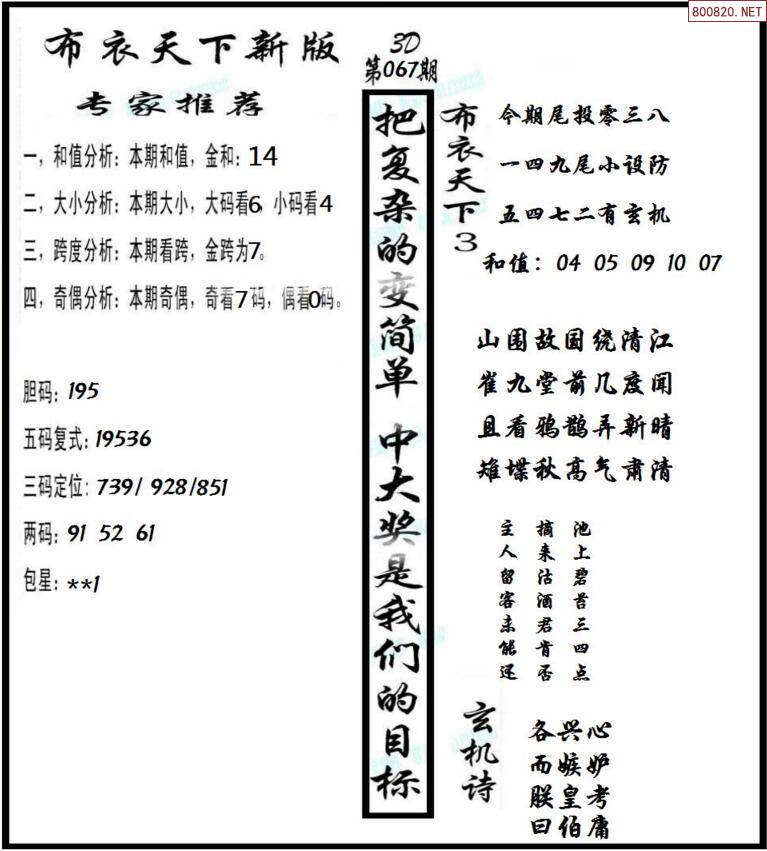 800820.NET
布衣天下新版
专家推荐
一，和值分析：本期和值，金和：14
二，大小分析：本期大小，大码看6，小码看4
三，跨度分析：本期看跨，金跨为7。
四，奇偶分析：本期奇偶，奇看7码，偶看0码。
胆码：195
五码复式：19536
三码定位：739/ 928/851
两码：91 52 61
包星：**1
3D
第067期
把复杂的变简单 中大奖是我们的目标
布衣天下3
今期尾投零三八
一四九尾小设防
五四七二有玄机
和值：04 05 09 10 07
山围故国绕清江
崔九堂前几度闻
且看鸦鹊弄新晴
雉堞秋高气肃清
池上碧苔三四点
摘来沽酒君肯否
主人留客未能还
玄机诗
各兴心
而嫉妒
朕皇考
曰伯庸